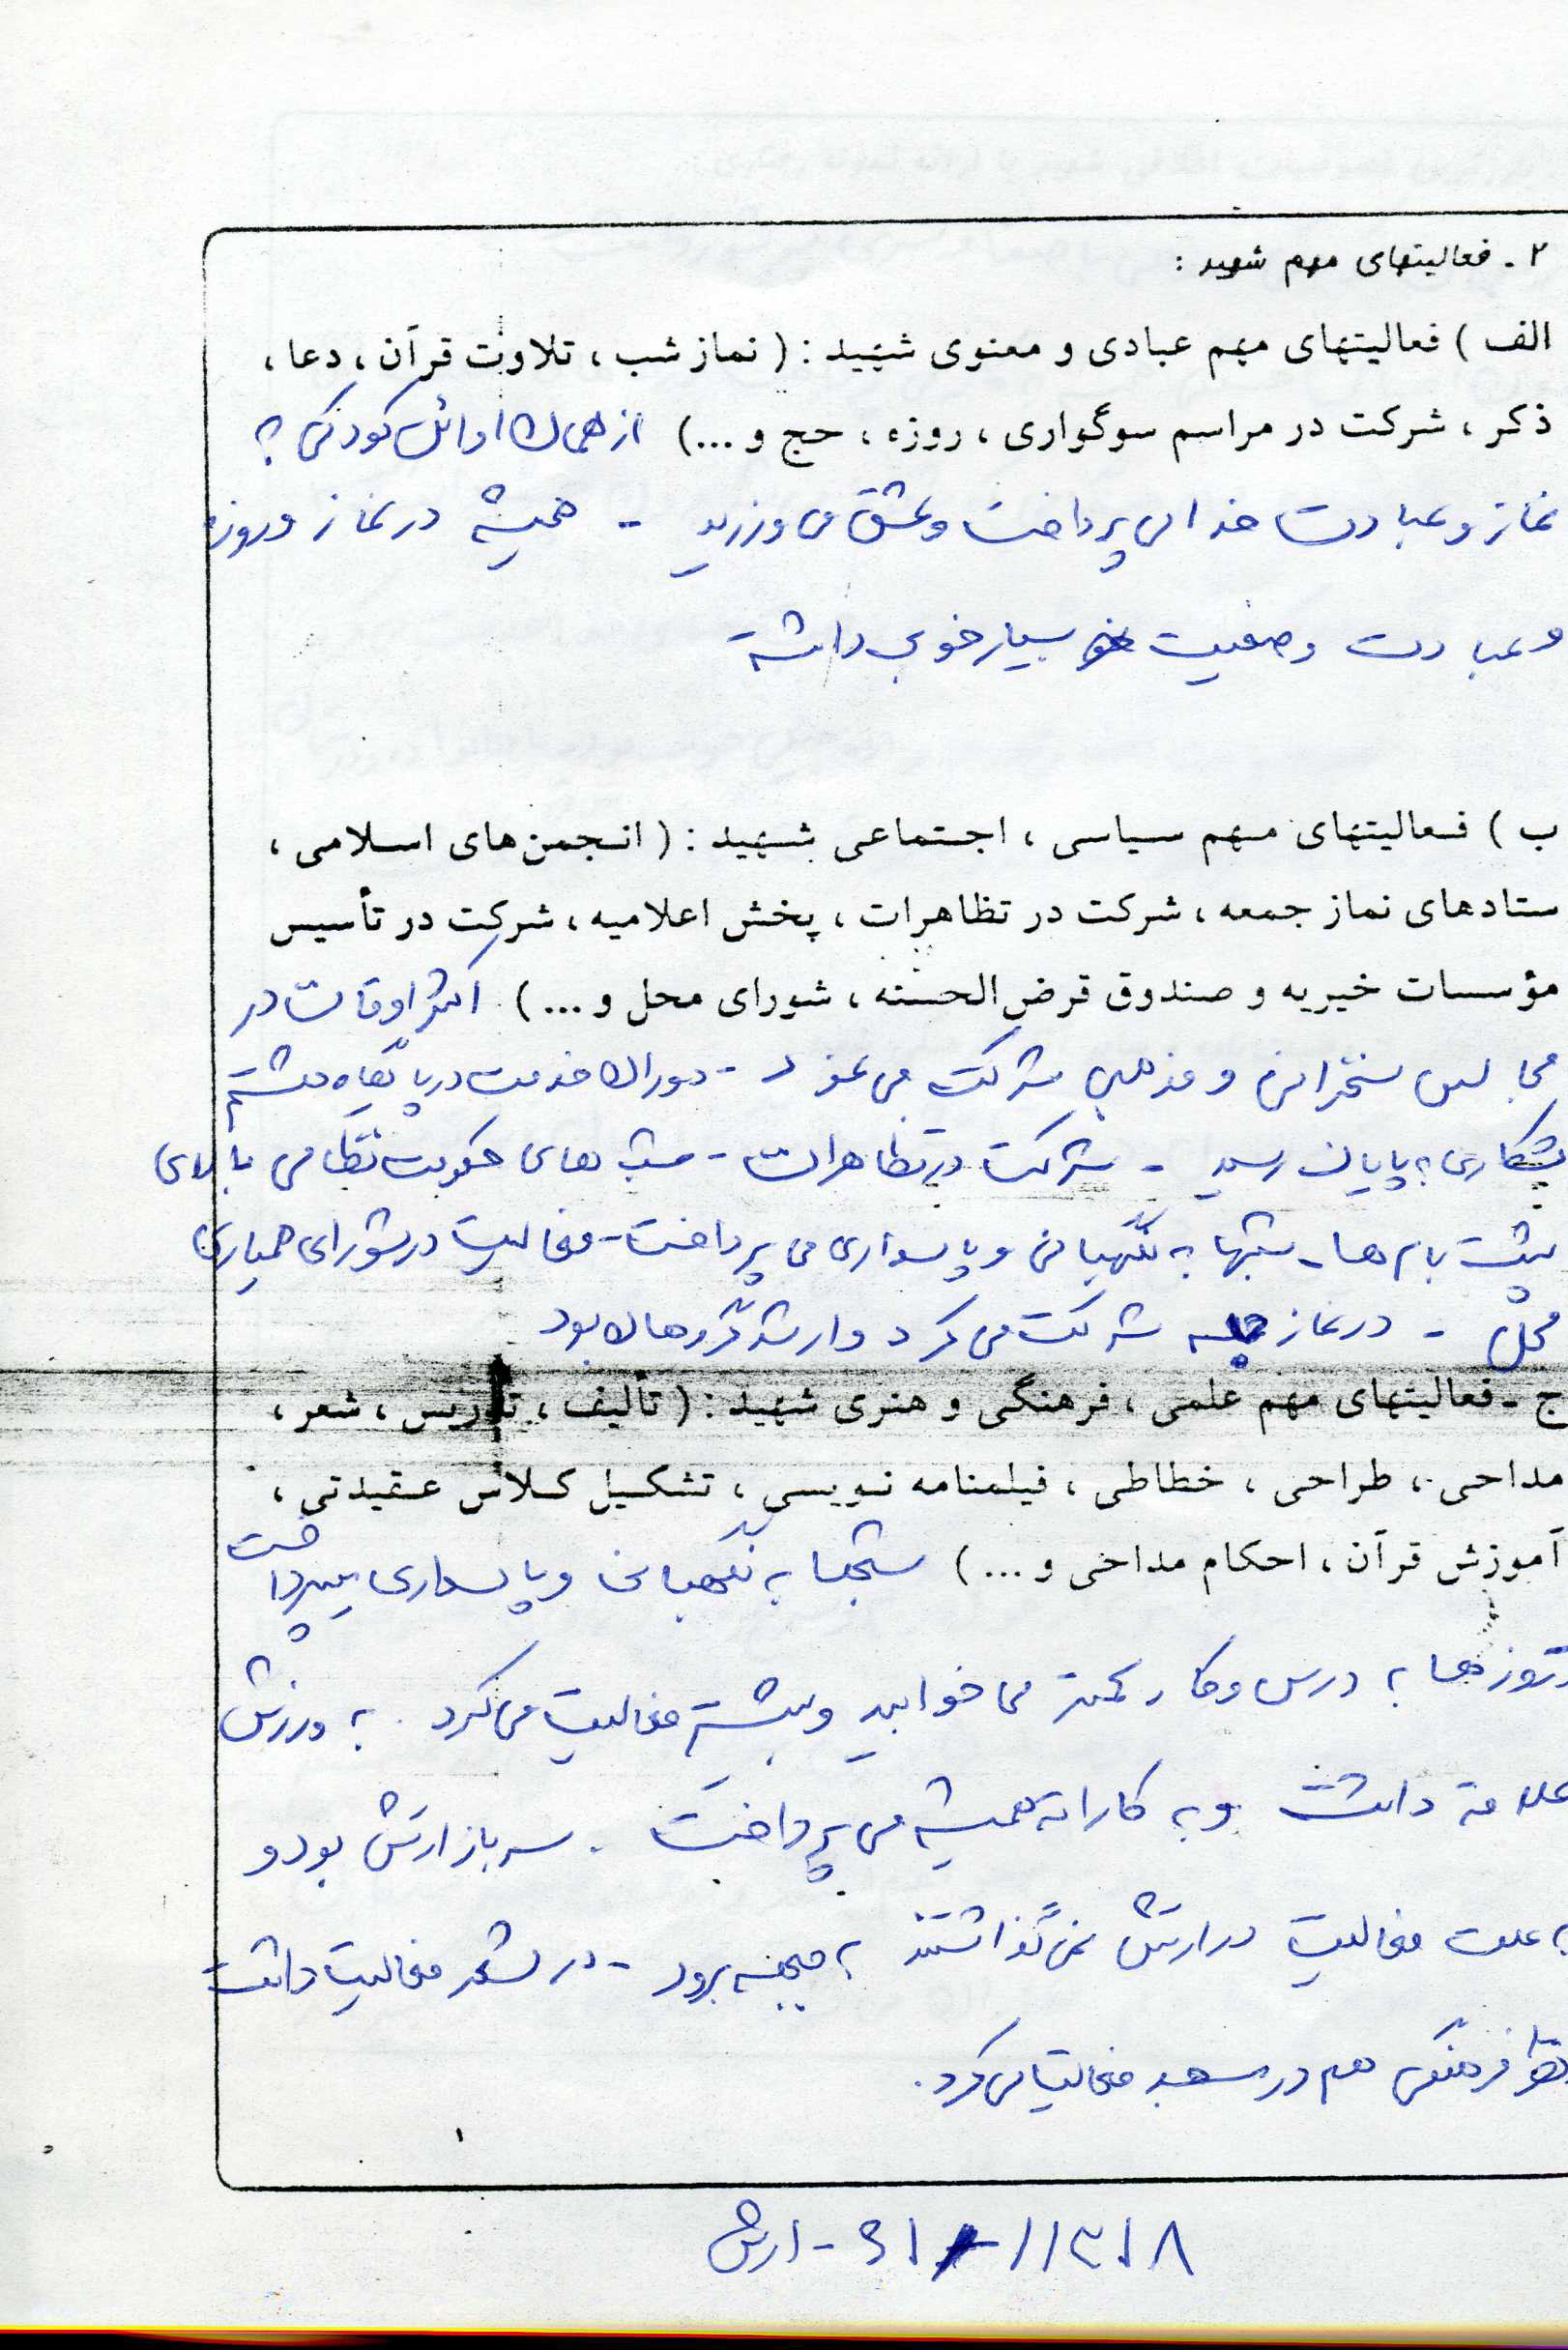 ۲ ـ فعالیتهای مهم شهید :
الف ) فعالیتهای مهم عبادی و معنوی شهید : ( نماز شب ، تلاوت قرآن ، دعا ،
ذکر ، شرکت در مراسم سوگواری ، روزه ، حج و ...) از همان اوائل کودکی به
نماز و عبادت خدا می پرداخت و عشق می ورزید - همیشه در نماز و روزه
و عبادت وضعیت بسیار خوبی داشت
ب ) فعالیتهای مهم سیاسی ، اجتماعی شهید : ( انجمن‌های اسلامی ،
ستادهای نماز جمعه ، شرکت در تظاهرات ، پخش اعلامیه ، شرکت در تأسیس
مؤسسات خیریه و صندوق قرض‌الحسنه ، شورای محل و ... ) اکثر اوقات در
مجالس سخنرانی و مذهبی شرکت می نمود - دوران خدمت در پایگاه هشتم
شکاری به پایان رسید - شرکت در تظاهرات - شب های حکومت نظامی بالای
پشت بام ها - شبها به نگهبانی و پاسداری می پرداخت - فعالیت در شورای همیاری
محل - در نماز شرکت می کرد و ارشد گردهان بود
ج ـ فعالیتهای مهم علمی ، فرهنگی و هنری شهید : ( تألیف ، تدریس ، شعر ،
مداحی ، طراحی ، خطاطی ، فیلمنامه نویسی ، تشکیل کلاس عقیدتی ،
آموزش قرآن ، احکام مداحی و ... ) شبها به نگهبانی و پاسداری میپرداخت
و روزها به درس و کار کمتر می خوابید و بیشتر فعالیت می کرد . به ورزش
علاقه داشت و به کاراته همیشه می پرداخت . سرباز ارتش بود و
به علت فعالیت در ارتش نمی گذاشتند به جبهه برود - در شعر فعالیت داشت
نظر فرهنگی هم در مسجد فعالیت می کرد .
۶۱ - ارتش ۱۱۳۱۸